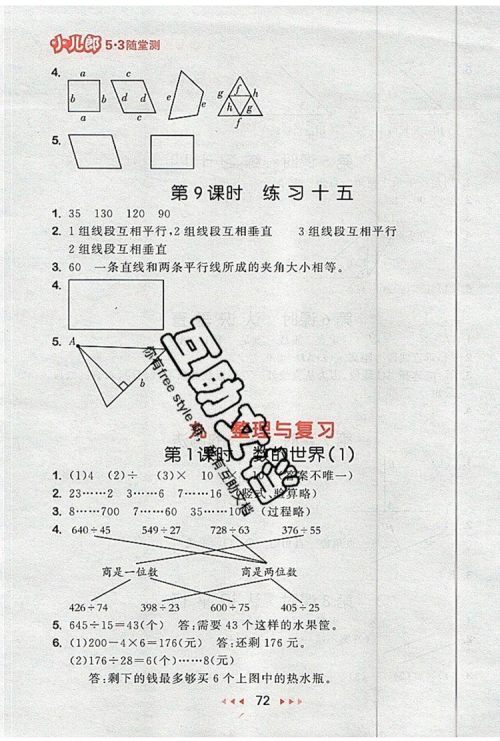 小儿郎 5·3随堂测
4. a c
b b d d e e g f h
a c h g
f
5.
第9课时 练习十五
1. 35 130 120 90
2. 1组线段互相平行,2组线段互相垂直 3组线段互相平行
2组线段互相垂直
3. 60 一条直线和两条平行线所成的夹角大小相等。
4.
5. A
b
互助文档
你有free style 吗,
有互助文档
九 整理与复习
第1课时 数的世界(1)
1. (1)4 (2)÷ (3)× 10 10 (答案不唯一)
2. 23……2 3……6 7……16 (竖式、验算略)
3. 8……700 7……60 35……10 (过程略)
4. 640÷45 549÷27 728÷63 376÷55
商是一位数 商是两位数
426÷74 398÷23 600÷75 405÷25
5. 645÷15=43(个) 答:需要43个这样的水果筐。
6. (1)200-4×6=176(元) 答:还剩176元。
(2)176÷28=6(个)……8(元)
答:剩下的钱最多够买6个上图中的热水瓶。
72